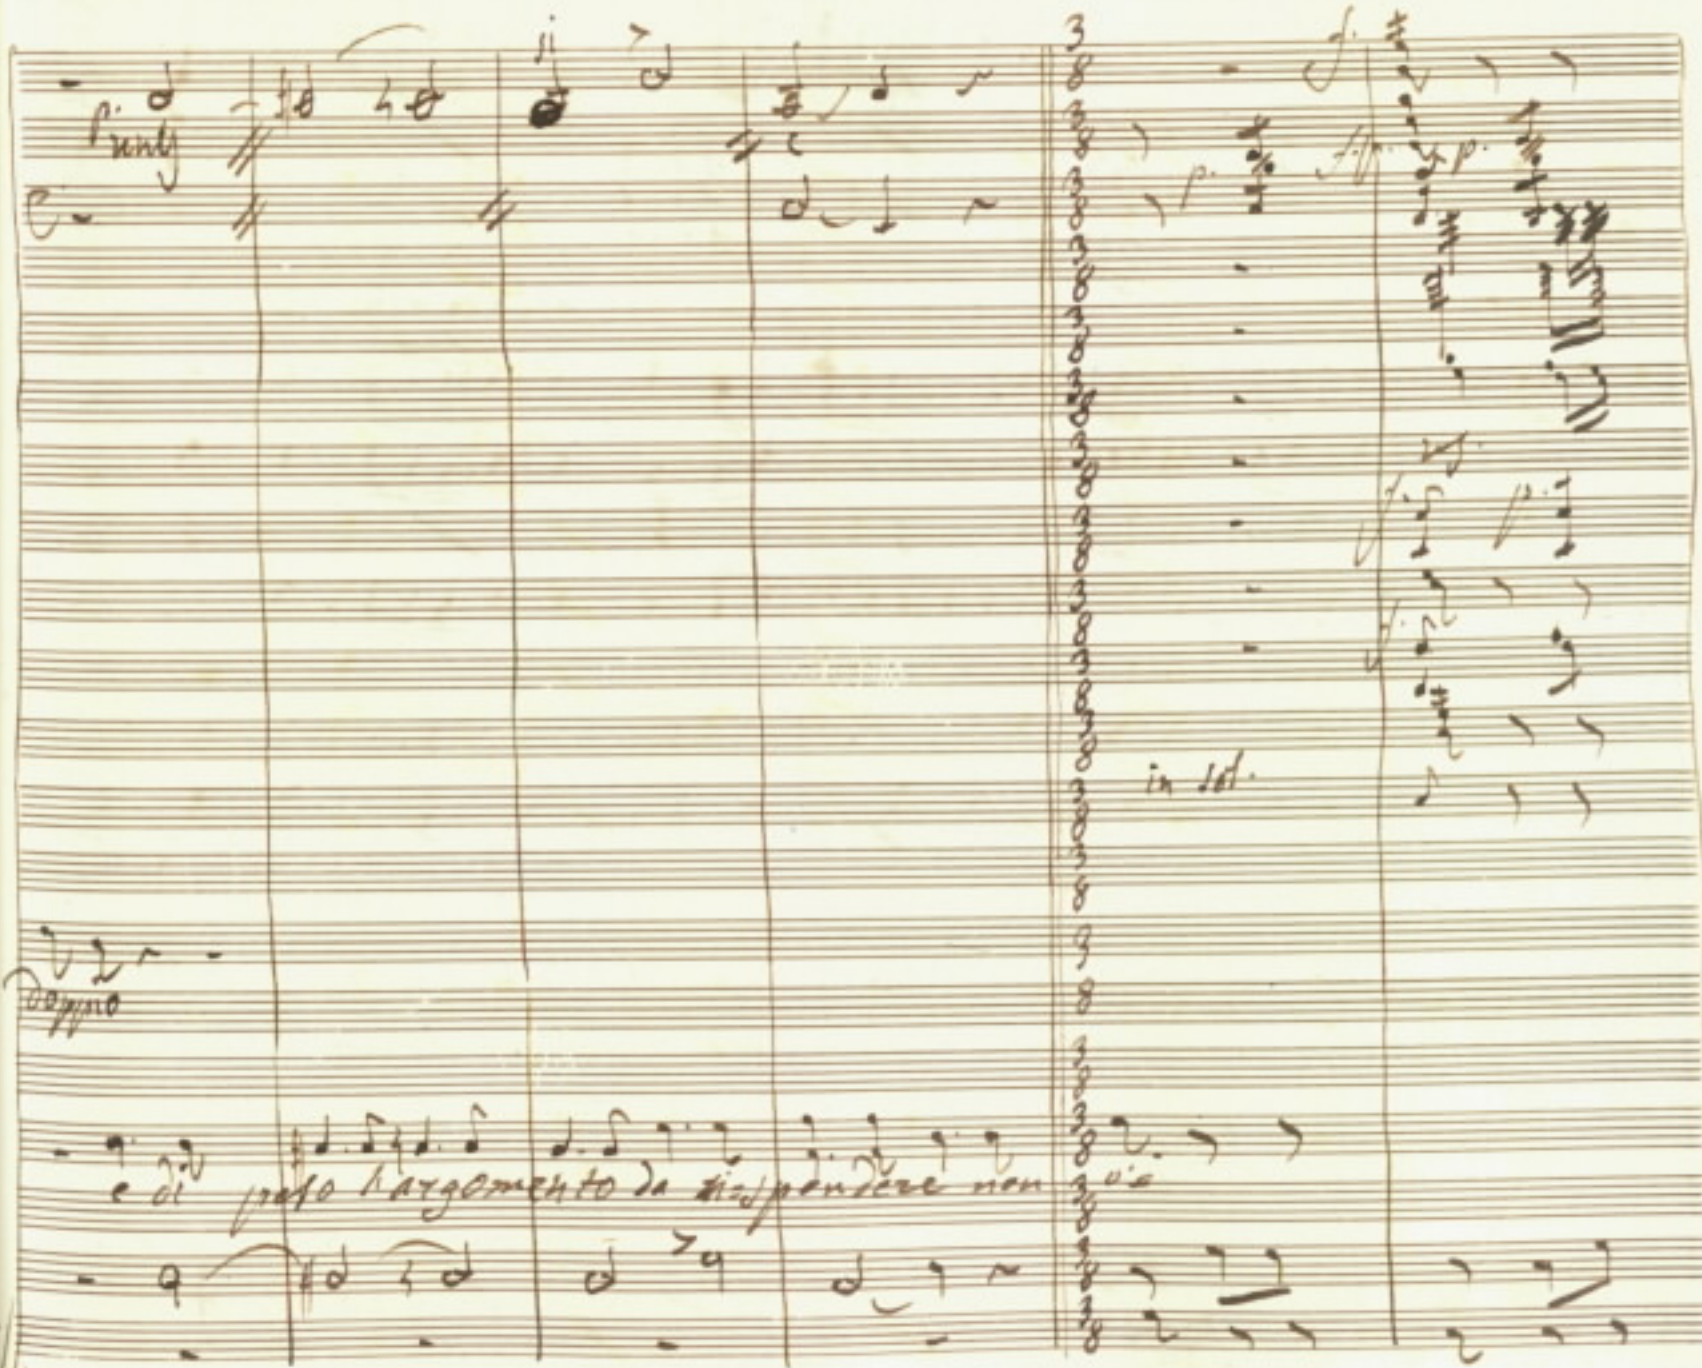 f.
p. unis
f.p. p.
p.
f. p.
f.
in sol.
Doppio
e di peso l'argomento da rispondere non v'è